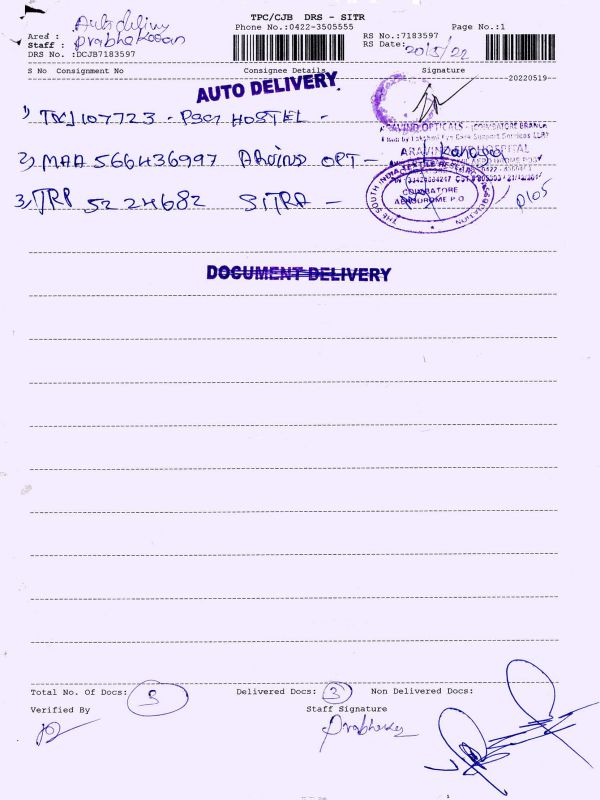 TPC/CJB DRS - SITR
Phone No.:0422-3505555
Page No.:1
Ared : Auto delivery
Staff : Prabhakaran
RS No.:7183597
RS Date: 20/5/22
DRS No. :DCJB7183597
S No Consignment No Consignee Details Signature
20220519
AUTO DELIVERY
1) 107723 - HOSTEL -
ARAVIND OPTICALS - COIMBATORE BRANCH
ARAVIND EYE HOSPITAL
2) MAA 566436997 ARVIND OPT -
3) TRP 5224682 SITRA -
THE SOUTH INDIA TEXTILE RESEARCH ASSOCIATION
COIMBATORE
AERODROME P.O
DOCUMENT DELIVERY
Total No. Of Docs: Delivered Docs: 3 Non Delivered Docs:
Verified By Staff Signature